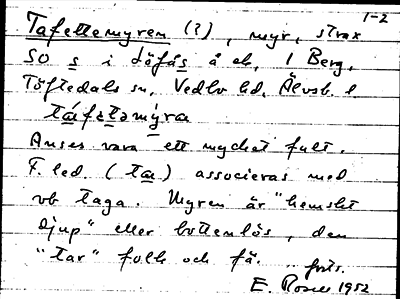 1-2
Tafettemyren (?), myr, strax
SO s i döfås å ek, 1 Berg,
Töftedals sn, Vedbo hd, Älvsb. l.
táfetamýra
Anses vara ett mycket fult.
F. led. (ta) associeras med
vb taga. Myren är "hemskt
djup" eller bottenlös, den
"tar" folk och fä.
forts.
E. Rosell 1952